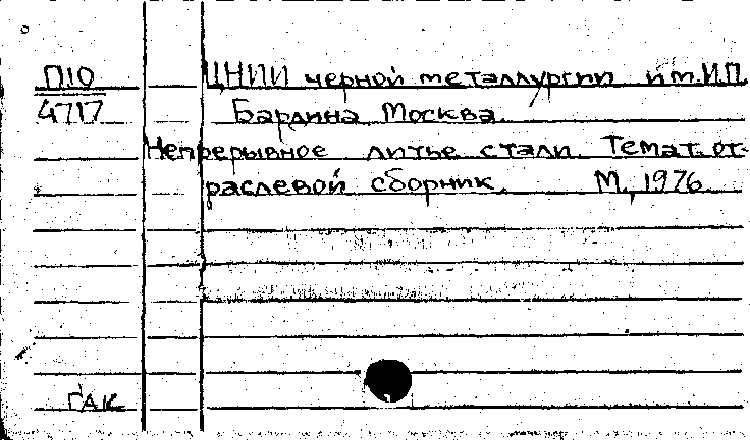 П10 ЦНИИ черной металлургии им. И.П.
4717 Бардина Москва.
Непрерывное литье стали. Темат. от-
раслевой сборник. М., 1976.
ГАК